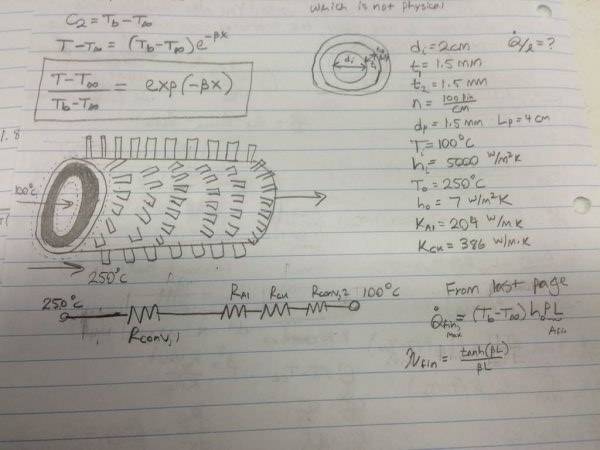 which is not physical
C₂ = T_b - T_∞
T - T_∞ = (T_b - T_∞)e^{-βx}
(T - T_∞)/(T_b - T_∞) = exp(-βx)
dᵢ
dᵢ = 2cm Q̇/ℓ = ?
t₁ = 1.5 mm
t₂ = 1.5 mm
n = 100 pin/cm
d_p = 1.5 mm L_p = 4 cm
Tᵢ = 100°C
hᵢ = 5000 W/m²K
T₀ = 250°C
h₀ = 7 W/m²K
K_Al = 204 W/m·K
K_Cu = 386 W/m·K
1.8
100°C
250°C
250°C R_conv,1 R_Al R_Cu R_conv,2 100°C
From last page
Q̇_fin,max = (T_b - T_∞) h₀ p L
η_fin = tanh(βL)/βL